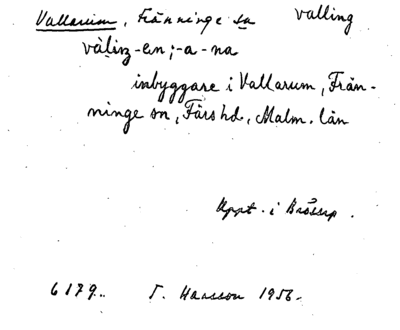 Vallarum, Fränninge sn valling
vàliŋ -en; -a -na
inbyggare i Vallarum, Frän-
ninge sn, Färs hd, Malm. län
Uppt. i Brösarp.
6179. T. Hansson 1956.